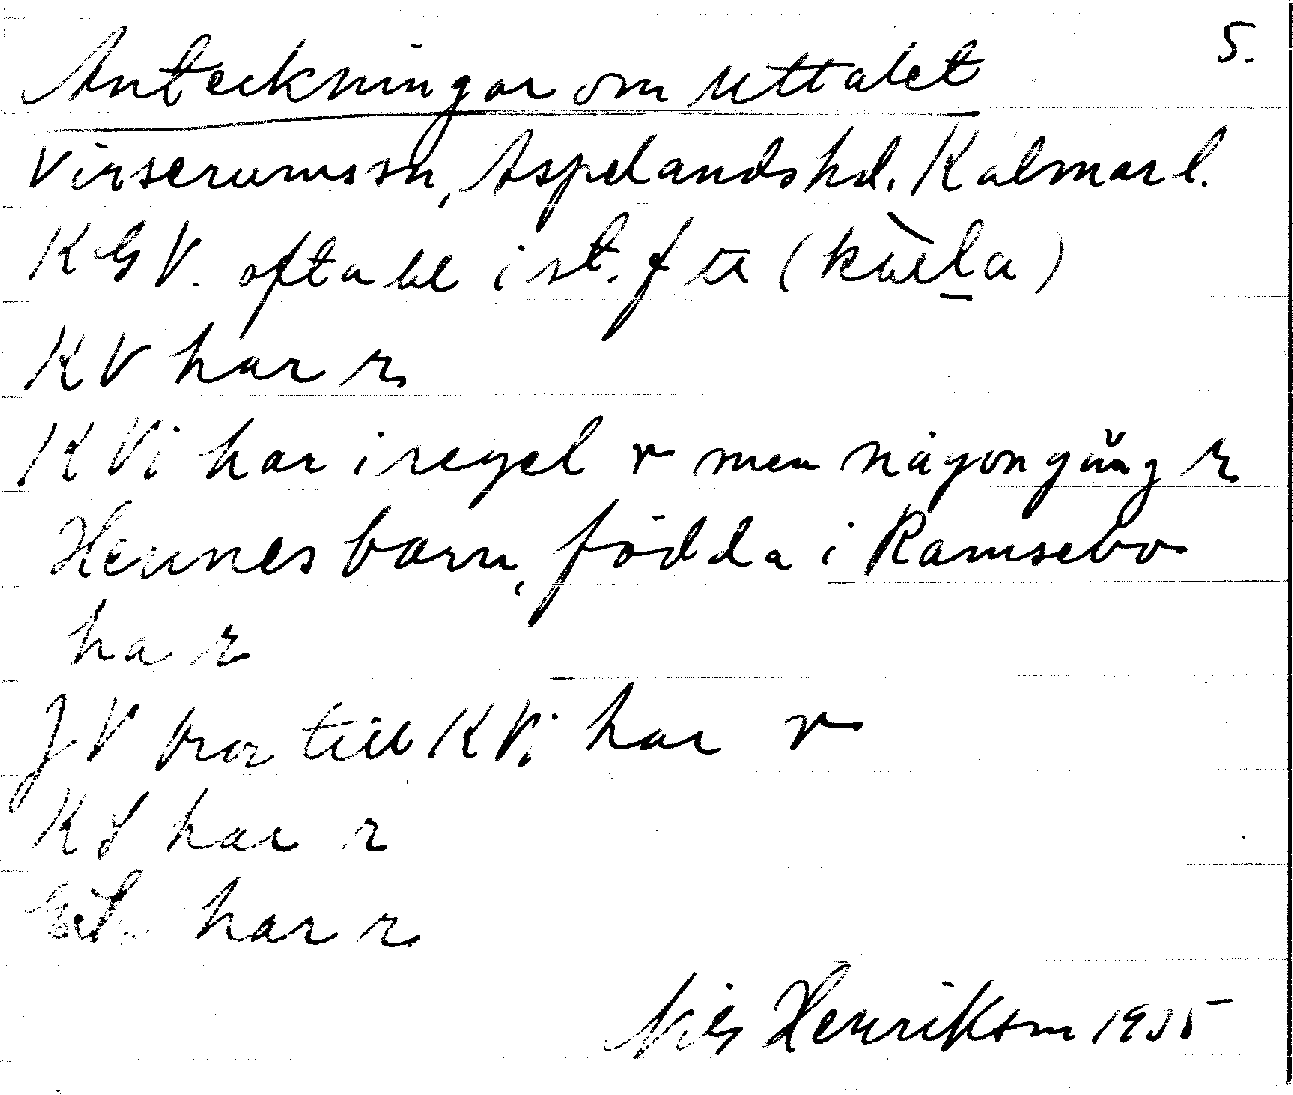 5.
Anteckningar om uttalet
Virserums sn, Aspelands hd. Kalmar l.
KGV. ofta i st. f
KV har r
KVi har i regel r men någon gång r
Hennes barn, födda i Ramsebo
ha r
JV bror till KVi har r
KS har r
har r
Nils Henrikson 1935